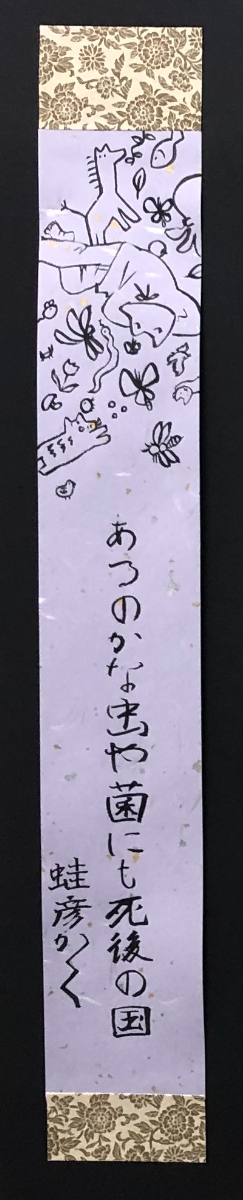 あるのかな虫や菌にも死後の国
蛙彦かく